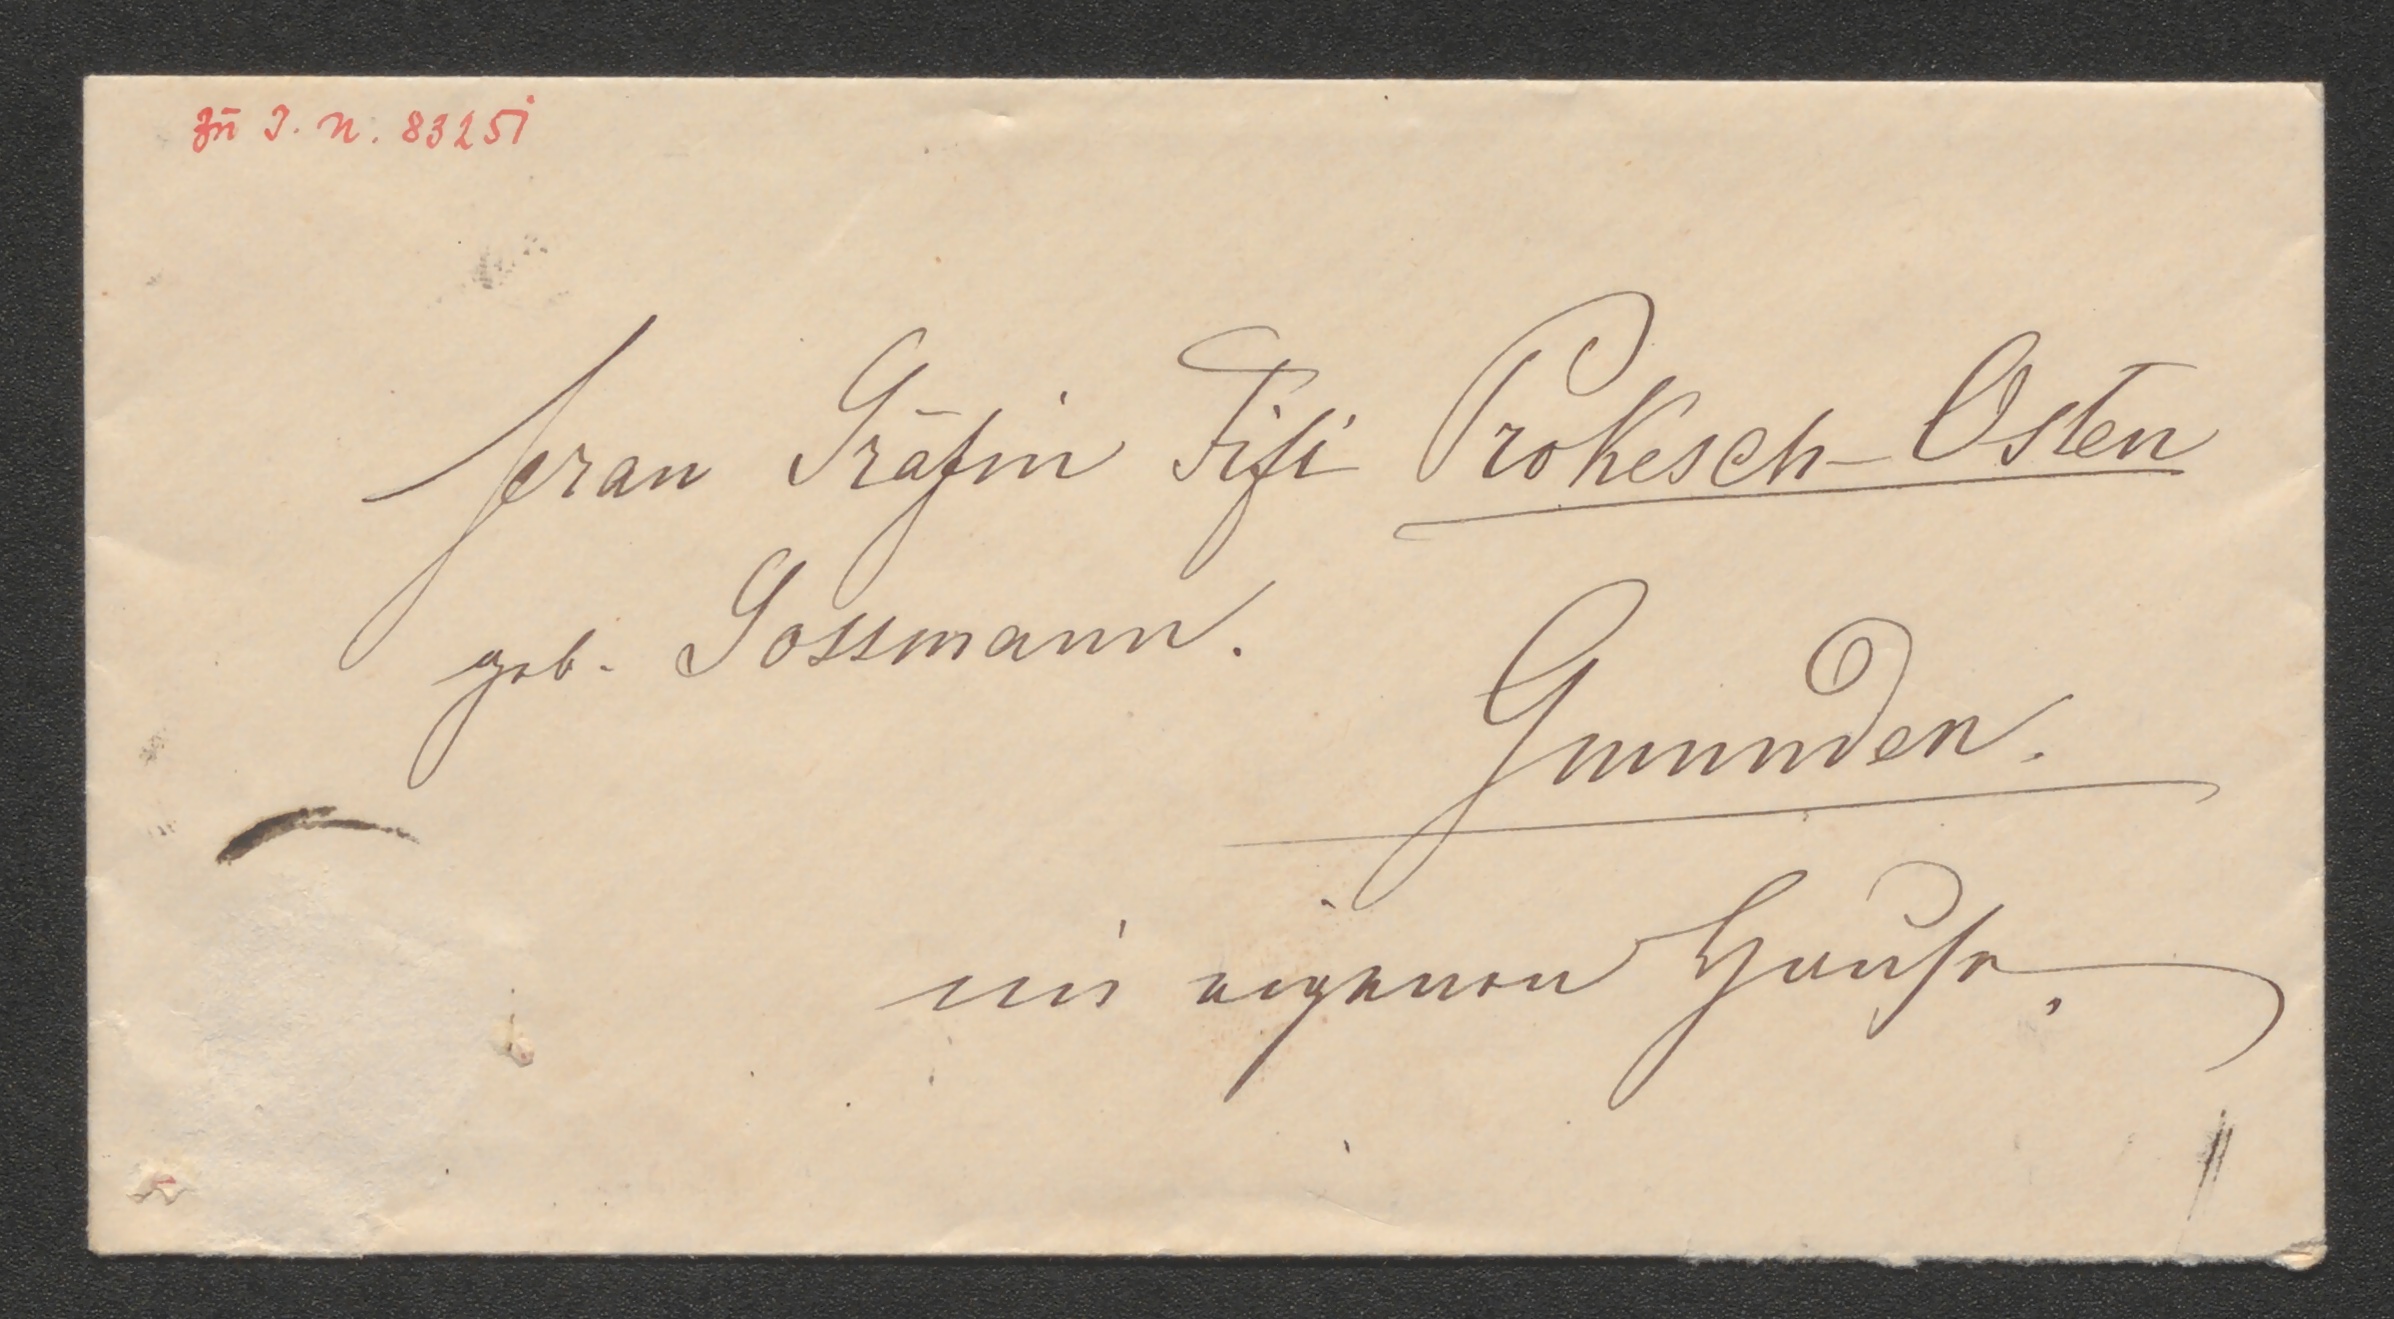 zu I. N. 83251
Frau Gräfin Fifi Prokesch-Osten
geb. Gossmann.
Gmunden.
im eigenen Hause.